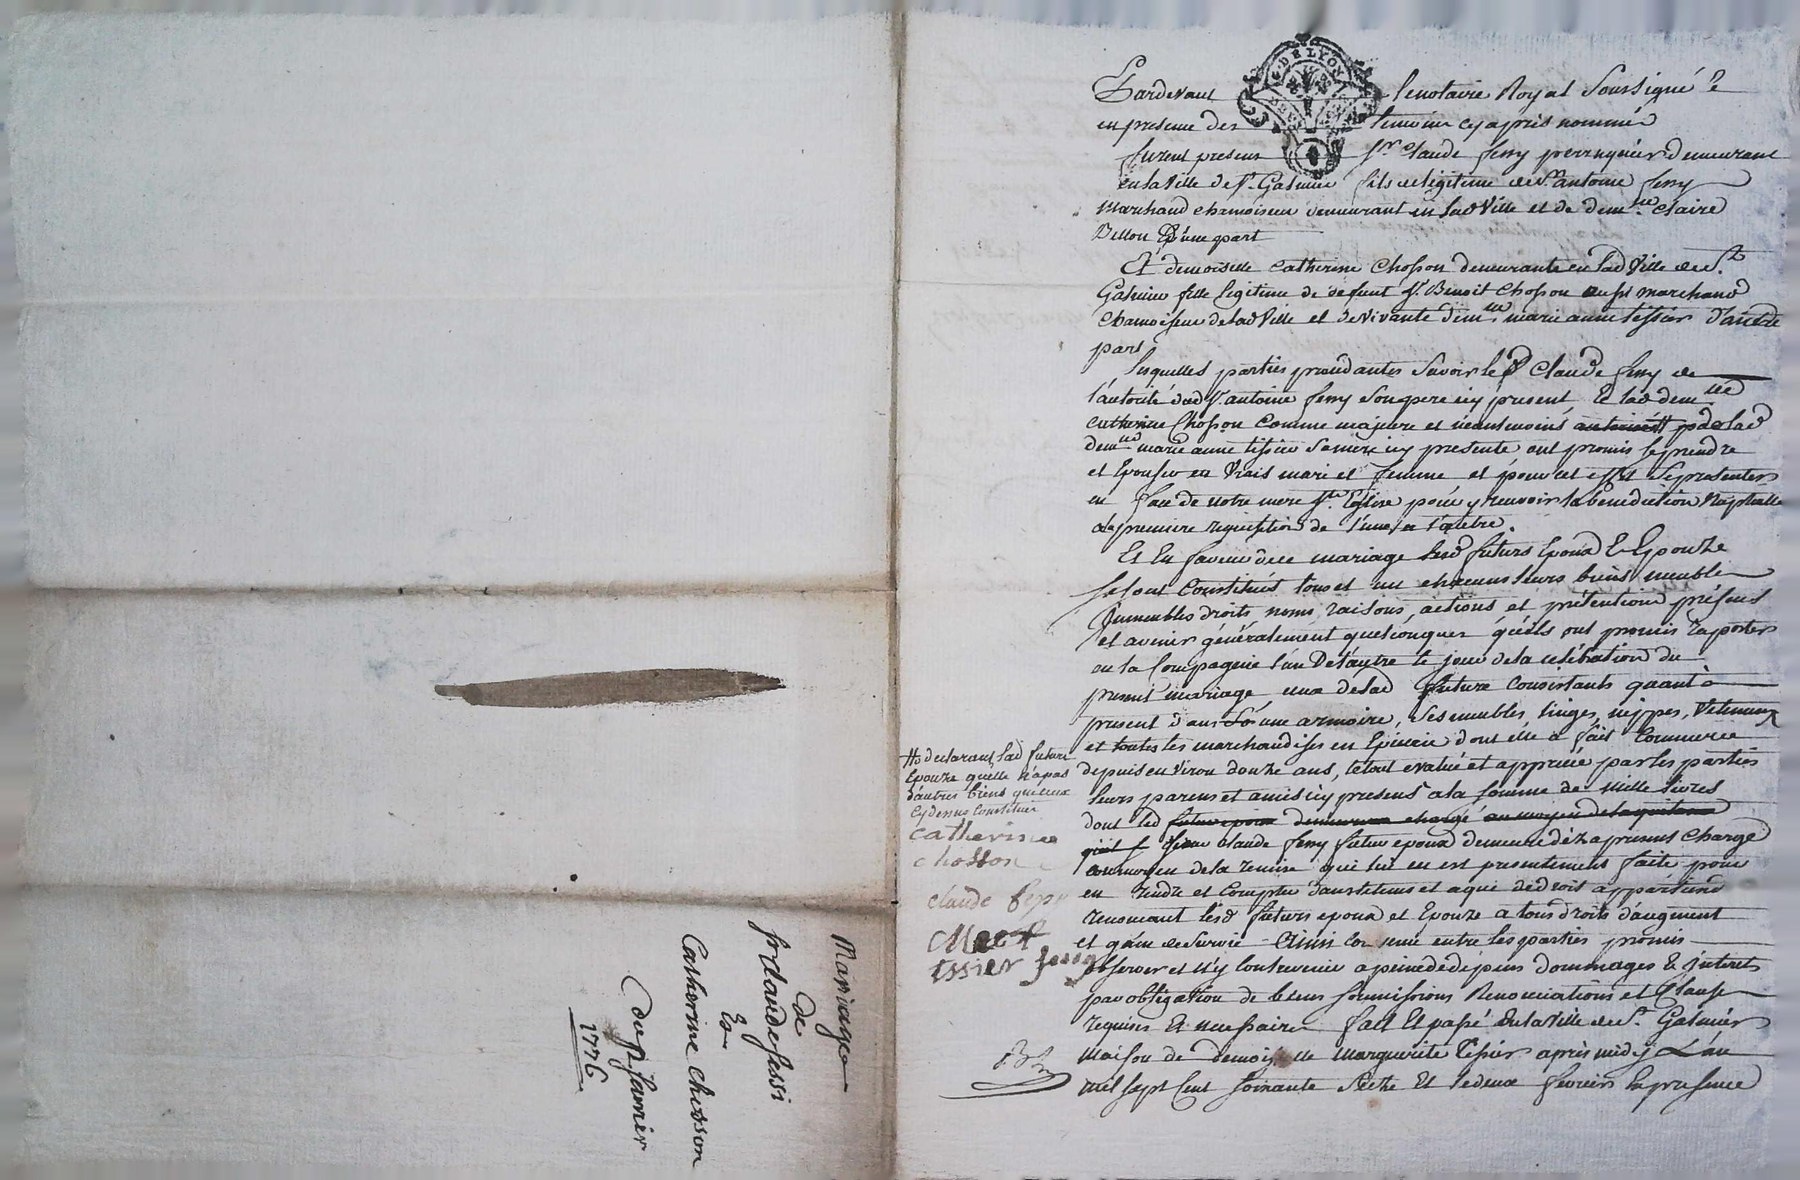 Pardevant le notaire Royal Soussigné &
en presence des temoins cy apres nommés
furent presens Sr. Claude fessy perruquier demeurant
en la Ville de St. Galmier fils legitime de Sr. antoine fessy
Marchand chamoiseur demeurant en lad Ville et de demlle claire
d'une part
Et demoiselle catherine Chosson demeurante en lad Ville de St.
Galmier fille legitime de defunt Sr. Benoit Chosson aussi marchand
chamoiseur de lad Ville et de vivante demlle marie anne tessier d'autre
part
lesquelles parties procedantes Savoir led Sr Claude fessy de
l'autorité dud Sr. antoine fessy Son pere icy present, & lad demlle
catherine Chosson Comme majeure et néantmoins de lad
demlle marie anne tissier Sa mere icy presente ont promis se prendre
et Epouser en Vrais mari et femme et pour cet effet Se presenter
en face de notre mere Ste. Eglise pour y recevoir la benediction Nuptialle
a la premiere requisition de l'une a l'autre.
Et En faveur de ce mariage lesd futurs Epoux & Epouze
se sont Constitués tous et un chacuns leurs biens meubles
Immeubles droits noms, raisons, actions et prétentions présens
et avenir généralement quelconques qu'ils ont promis raporter
en la Compagnie l'un De l'autre le jour de la celebration du
present mariage ceux de lad future Consistants quant à
present dans une armoire, Ses meubles, linges, nippes, Vetemens
et toutes les marchandises en Epicerie dont elle a fait Commerce
depuis environ douze ans, le tout evalué et apprecié par les parties
leurs parens et amis icy presens a la Somme de Mille livres
dont led futur epoux demeurera chargé au moyen de la quittance
Claude fessy futur epoux demeure déz a present Chargé
au moyen de la remise qui lui en est presentement faite pour
en rendre et Compter dans le tems et a qui de droit appartiend
renoncant lesd futurs epoux et Epouze a tous droits d'augment
et gain de Survie Ainsi Convenu entre les parties promis
observer et n'y Contrevenir a peine de depens dommages & Interets
par obligation de biens Soumissions Renonciations et Clauses
requises Et necessaires fait Et passé En la Ville de St. Galmier
Maison de demoiselle Marguerite Tissier apres midy L'an
mil Sept Cent Soixante Seize Et le deux fevrier En presence
declarant lad future
Epouze quelle n'a pas
d'autres biens que ceux
Cy dessus Constitués
catherine
chosson
claude fessy
tissier fessy
Mariage
de
Sr Claude fessi
Et
Catherine Chosson
Du 2 fevrier
1776